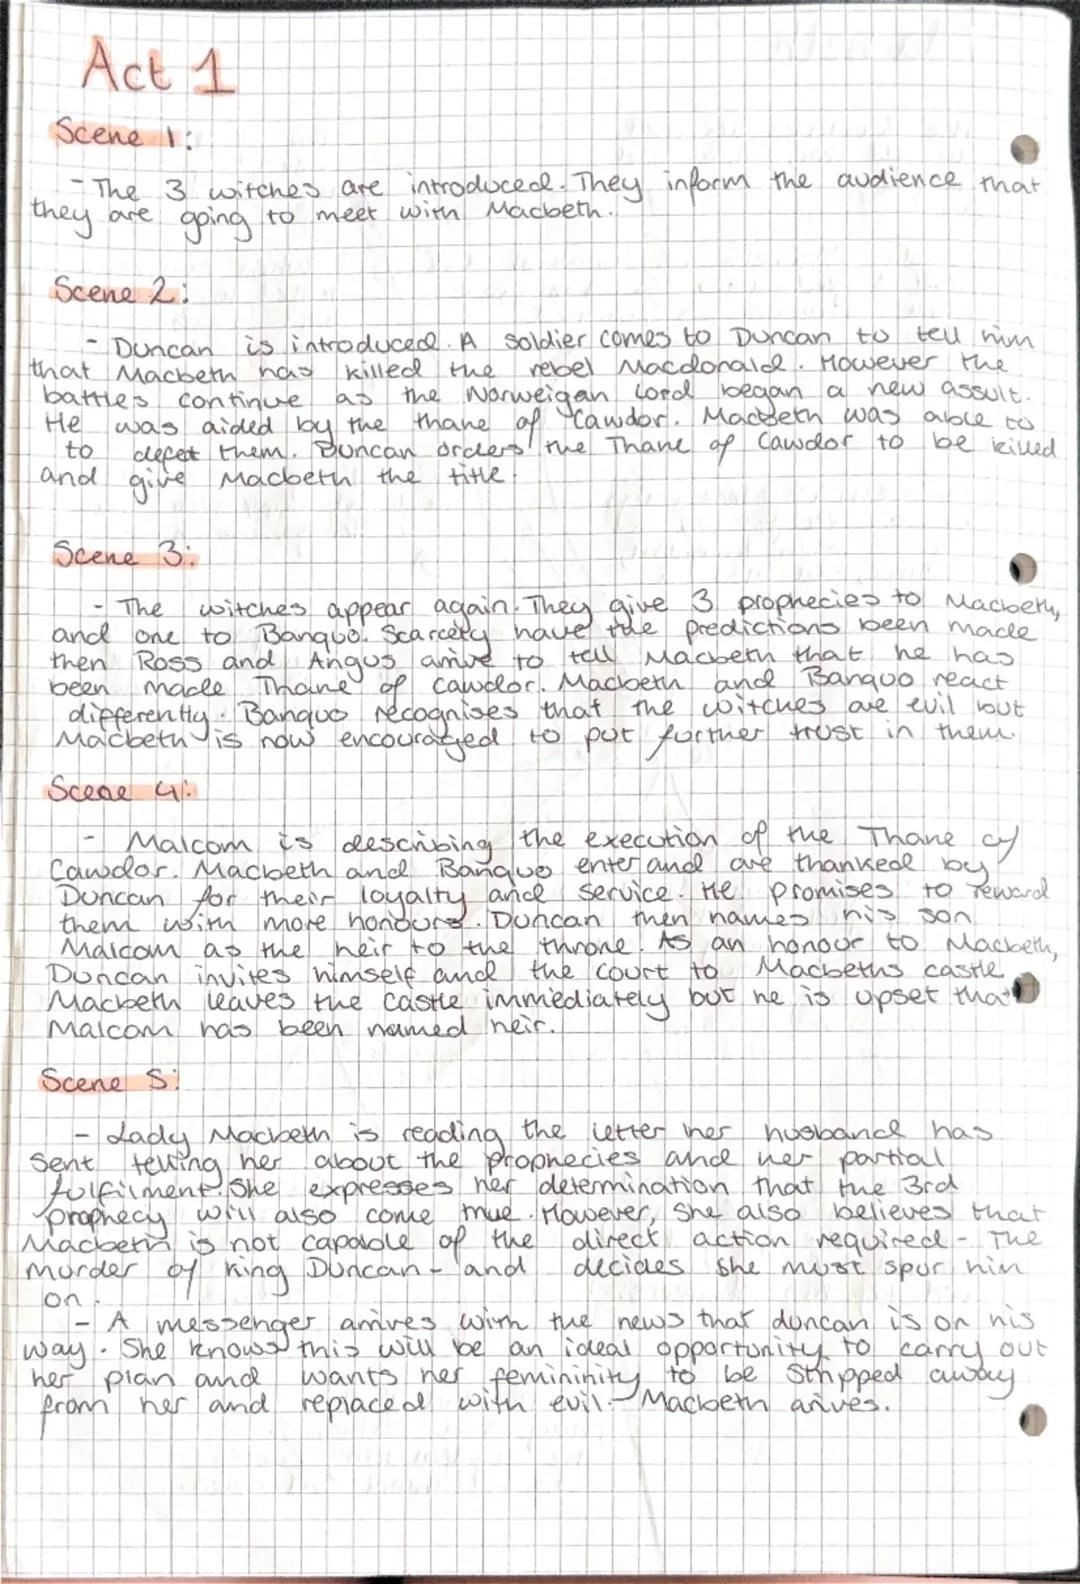 Act 1
Scene 1:
- The 3 witches are introduced. They inform the audience that
they are going to meet with Macbeth.
Scene 2:
- Duncan is introduced. A soldier comes to Duncan to tell him
that Macbeth has killed the rebel Macdonald. However the
battles continue as the Norweigan Lord began a new assult.
He was aided by the thane of Cawdor. Macbeth was able to
to defeat them. Duncan orders the Thane of Cawdor to be killed
and give Macbeth the title.
Scene 3:
- The witches appear again. They give 3 prophecies to Macbeth,
and one to Banquo. Scarcety have the predictions been made
then Ross and Angus arrive to tell Macbeth that he has
been made Thane of Cawdor. Macbeth and Banquo react
differently. Banquo recognises that the witches are evil but
Macbeth is now encouraged to put further trust in them.
Scene 4:
- Malcom is describing the execution of the Thane of
Cawdor. Macbeth and Banquo enter and are thanked by
Duncan for their loyalty and service. He promises to reward
them with more honours. Duncan then names his son
Malcom as the heir to the throne. As an honour to Macbeth,
Duncan invites himself and the court to Macbeths castle.
Macbeth leaves the castle immediately but he is upset that
Malcom has been named heir.
Scene 5:
- Lady Macbeth is reading the letter her husband has
sent telling her about the prophecies and her partial
fulfilment. She expresses her determination that the 3rd
prophecy will also come true. However, she also believes that
Macbeth is not capable of the direct action required - The
murder of king Duncan - and decides she must spur him
on.
- A messenger arrives with the news that duncan is on his
way. She knows this will be an ideal opportunity to carry out
her plan and wants her femininity to be stripped away
from her and replaced with evil. - Macbeth arives.